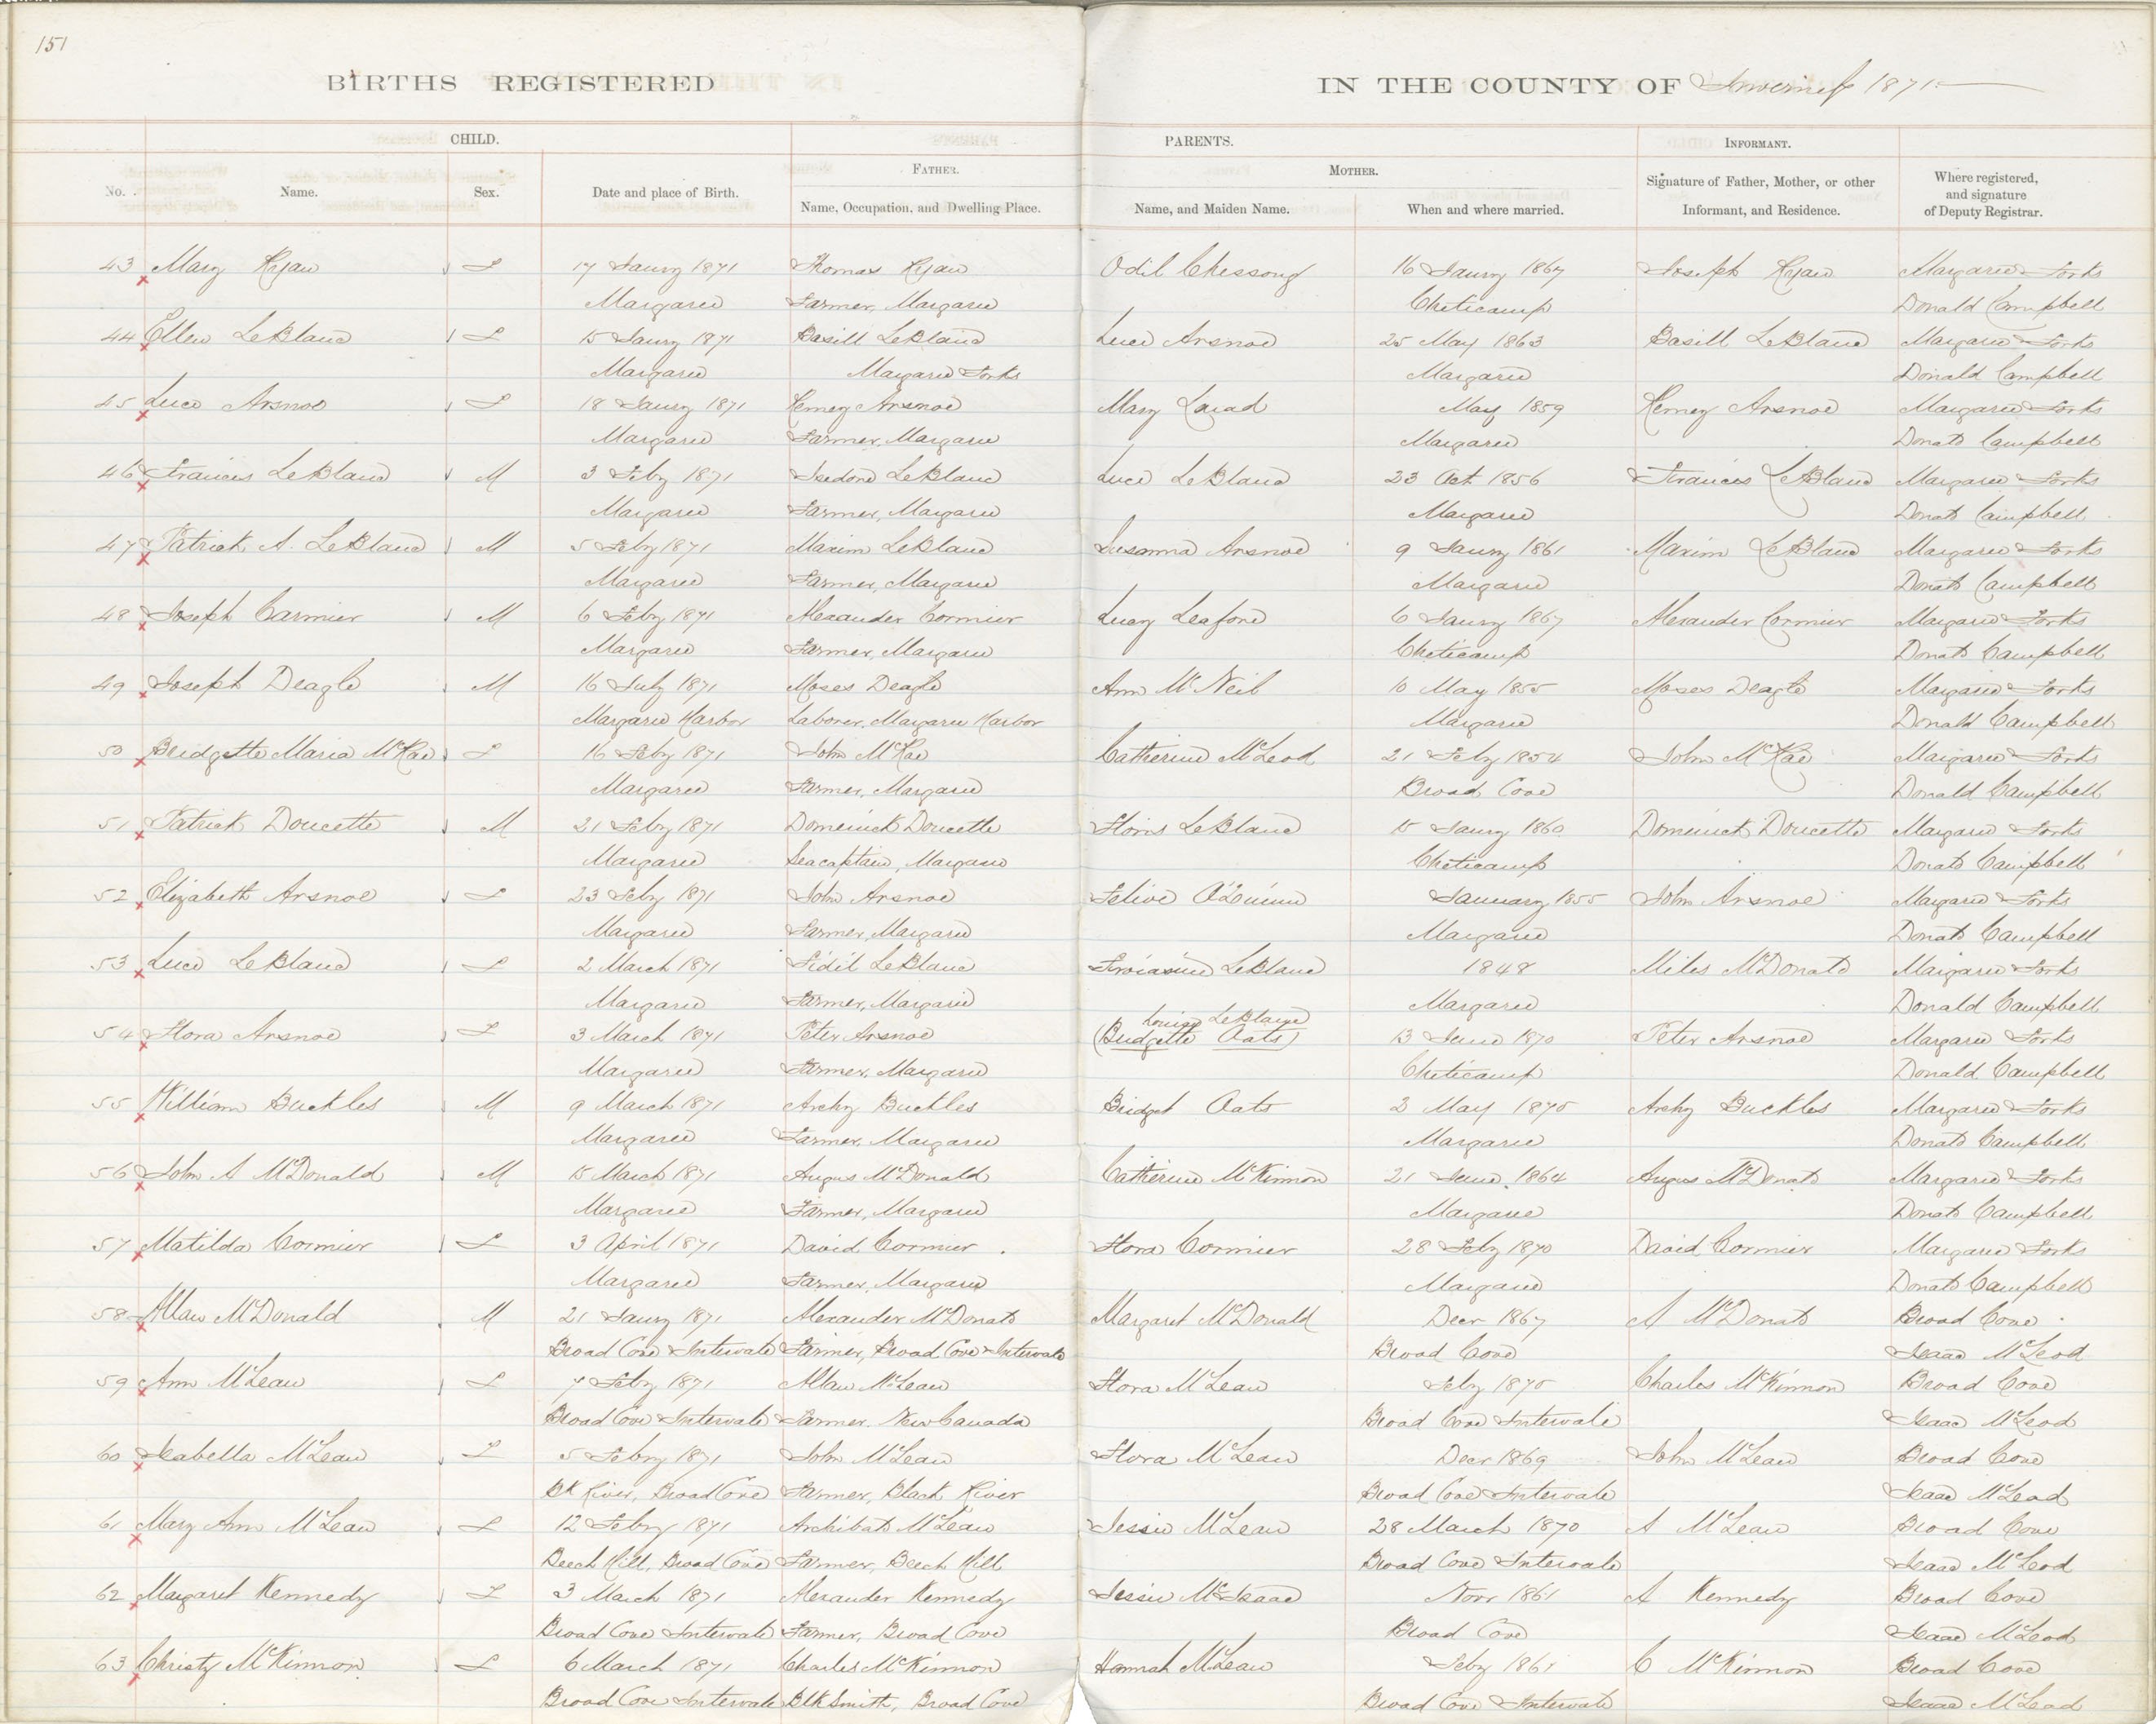 151
BIRTHS REGISTERED IN THE COUNTY OF Inverness 1871
CHILD. PARENTS. INFORMANT.
FATHER. MOTHER.
No. Name. Sex. Date and place of Birth. Name, Occupation, and Dwelling Place. Name, and Maiden Name. When and where married. Signature of Father, Mother, or other Informant, and Residence. Where registered, and signature of Deputy Registrar.
43 Mary Ryan F 17 Jany 1871 Thomas Ryan Odil Chessong 16 Jany 1867 Joseph Ryan Margaree Forks
Margaree Farmer, Margaree Cheticamp Donald Campbell
44 Ellen LeBlanc F 15 Jany 1871 Basill LeBlanc Luce Arsnoe 25 May 1863 Basill LeBlanc Margaree Forks
Margaree Margaree Forks Margaree Donald Campbell
45 Luce Arsnoe F 18 Jany 1871 Hemey Arsnoe Mary May 1859 Hemey Arsnoe Margaree Forks
Margaree Farmer, Margaree Margaree Donald Campbell
46 Francis LeBlanc M 3 Feby 1871 Isedore LeBlanc Luce LeBlanc 23 Oct. 1856 Francis LeBlanc Margaree Forks
Margaree Farmer, Margaree Margaree Donald Campbell
47 Patrick A. LeBlanc M 5 Feby 1871 Maxim LeBlanc Susanna Arsnoe 9 Jany 1861 Maxim LeBlanc Margaree Forks
Margaree Farmer, Margaree Margaree Donald Campbell
48 Joseph Carmier M 6 Feby 1871 Alexander Cormier Lucy Leaford 6 Jany 1867 Alexander Cormier Margaree Forks
Margaree Farmer, Margaree Cheticamp Donald Campbell
49 Joseph Deagle M 16 July 1871 Moses Deagle Ann McNeil 10 May 1855 Moses Deagle Margaree Forks
Margaree Harbor Laborer, Margaree Harbor Margaree Donald Campbell
50 Bridgette Maria McRae F 16 Feby 1871 John McRae Catherine McLeod 21 Feby 1854 John McRae Margaree Forks
Margaree Farmer, Margaree Broad Cove Donald Campbell
51 Patrick Doucette M 21 Feby 1871 Domenick Doucette Floris LeBlanc 15 Jany 1860 Domenick Doucette Margaree Forks
Margaree Seacaptain, Margaree Cheticamp Donald Campbell
52 Elizabeth Arsnoe F 23 Feby 1871 John Arsnoe January 1855 John Arsnoe Margaree Forks
Margaree Farmer, Margaree Margaree Donald Campbell
53 Luce LeBlanc F 2 March 1871 Fidil LeBlanc LeBlanc 1848 Miles McDonald Margaree Forks
Margaree Farmer, Margaree Margaree Donald Campbell
Louise LeBlanc
54 Flora Arsnoe F 3 March 1871 Peter Arsnoe (Bridgette Oats) 13 June 1870 Peter Arsnoe Margaree Forks
Margaree Farmer, Margaree Cheticamp Donald Campbell
55 William Buckles M 9 March 1871 Archy Buckles Bridget Oats 2 May 1870 Archy Buckles Margaree Forks
Margaree Farmer, Margaree Margaree Donald Campbell
56 John A McDonald M 15 March 1871 Angus McDonald Catherine McKinnon 21 June 1864 Angus McDonald Margaree Forks
Margaree Farmer, Margaree Margaree Donald Campbell
57 Matilda Cormier F 3 April 1871 David Cormier Flora Cormier 28 Feby 1870 David Cormier Margaree Forks
Margaree Farmer, Margaree Margaree Donald Campbell
58 Allan McDonald M 21 Jany 1871 Alexander McDonald Margaret McDonald Decr 1867 A McDonald Broad Cove
Broad Cove Intervale Farmer, Broad Cove Intervale Broad Cove Isaac McLeod
59 Ann McLean F 7 Feby 1871 Allan McLean Flora McLean Feby 1870 Charles McKinnon Broad Cove
Broad Cove Intervale Farmer. New Canada Broad Cove Intervale Isaac McLeod
60 Isabella McLean F 5 Febry 1871 John McLean Flora McLean Decr 1869 John McLean Broad Cove
Bk River, Broad Cove Farmer, Black River Broad Cove Intervale Isaac McLeod
61 Mary Ann McLean F 12 Febry 1871 Archibald McLean Jessie McLean 28 March 1870 A McLean Broad Cove
Beech Hill, Broad Cove Farmer, Beech Hill Broad Cove Intervale Isaac McLeod
62 Margaret Kennedy F 3 March 1871 Alexander Kennedy Jessie McIsaac Novr 1861 A Kennedy Broad Cove
Broad Cove Intervale Farmer, Broad Cove Broad Cove Isaac McLeod
63 Christy McKinnon F 6 March 1871 Charles McKinnon Hannah McLean Feby 1861 C McKinnon Broad Cove
Broad Cove Intervale Blk Smith, Broad Cove Broad Cove Intervale Isaac McLeod